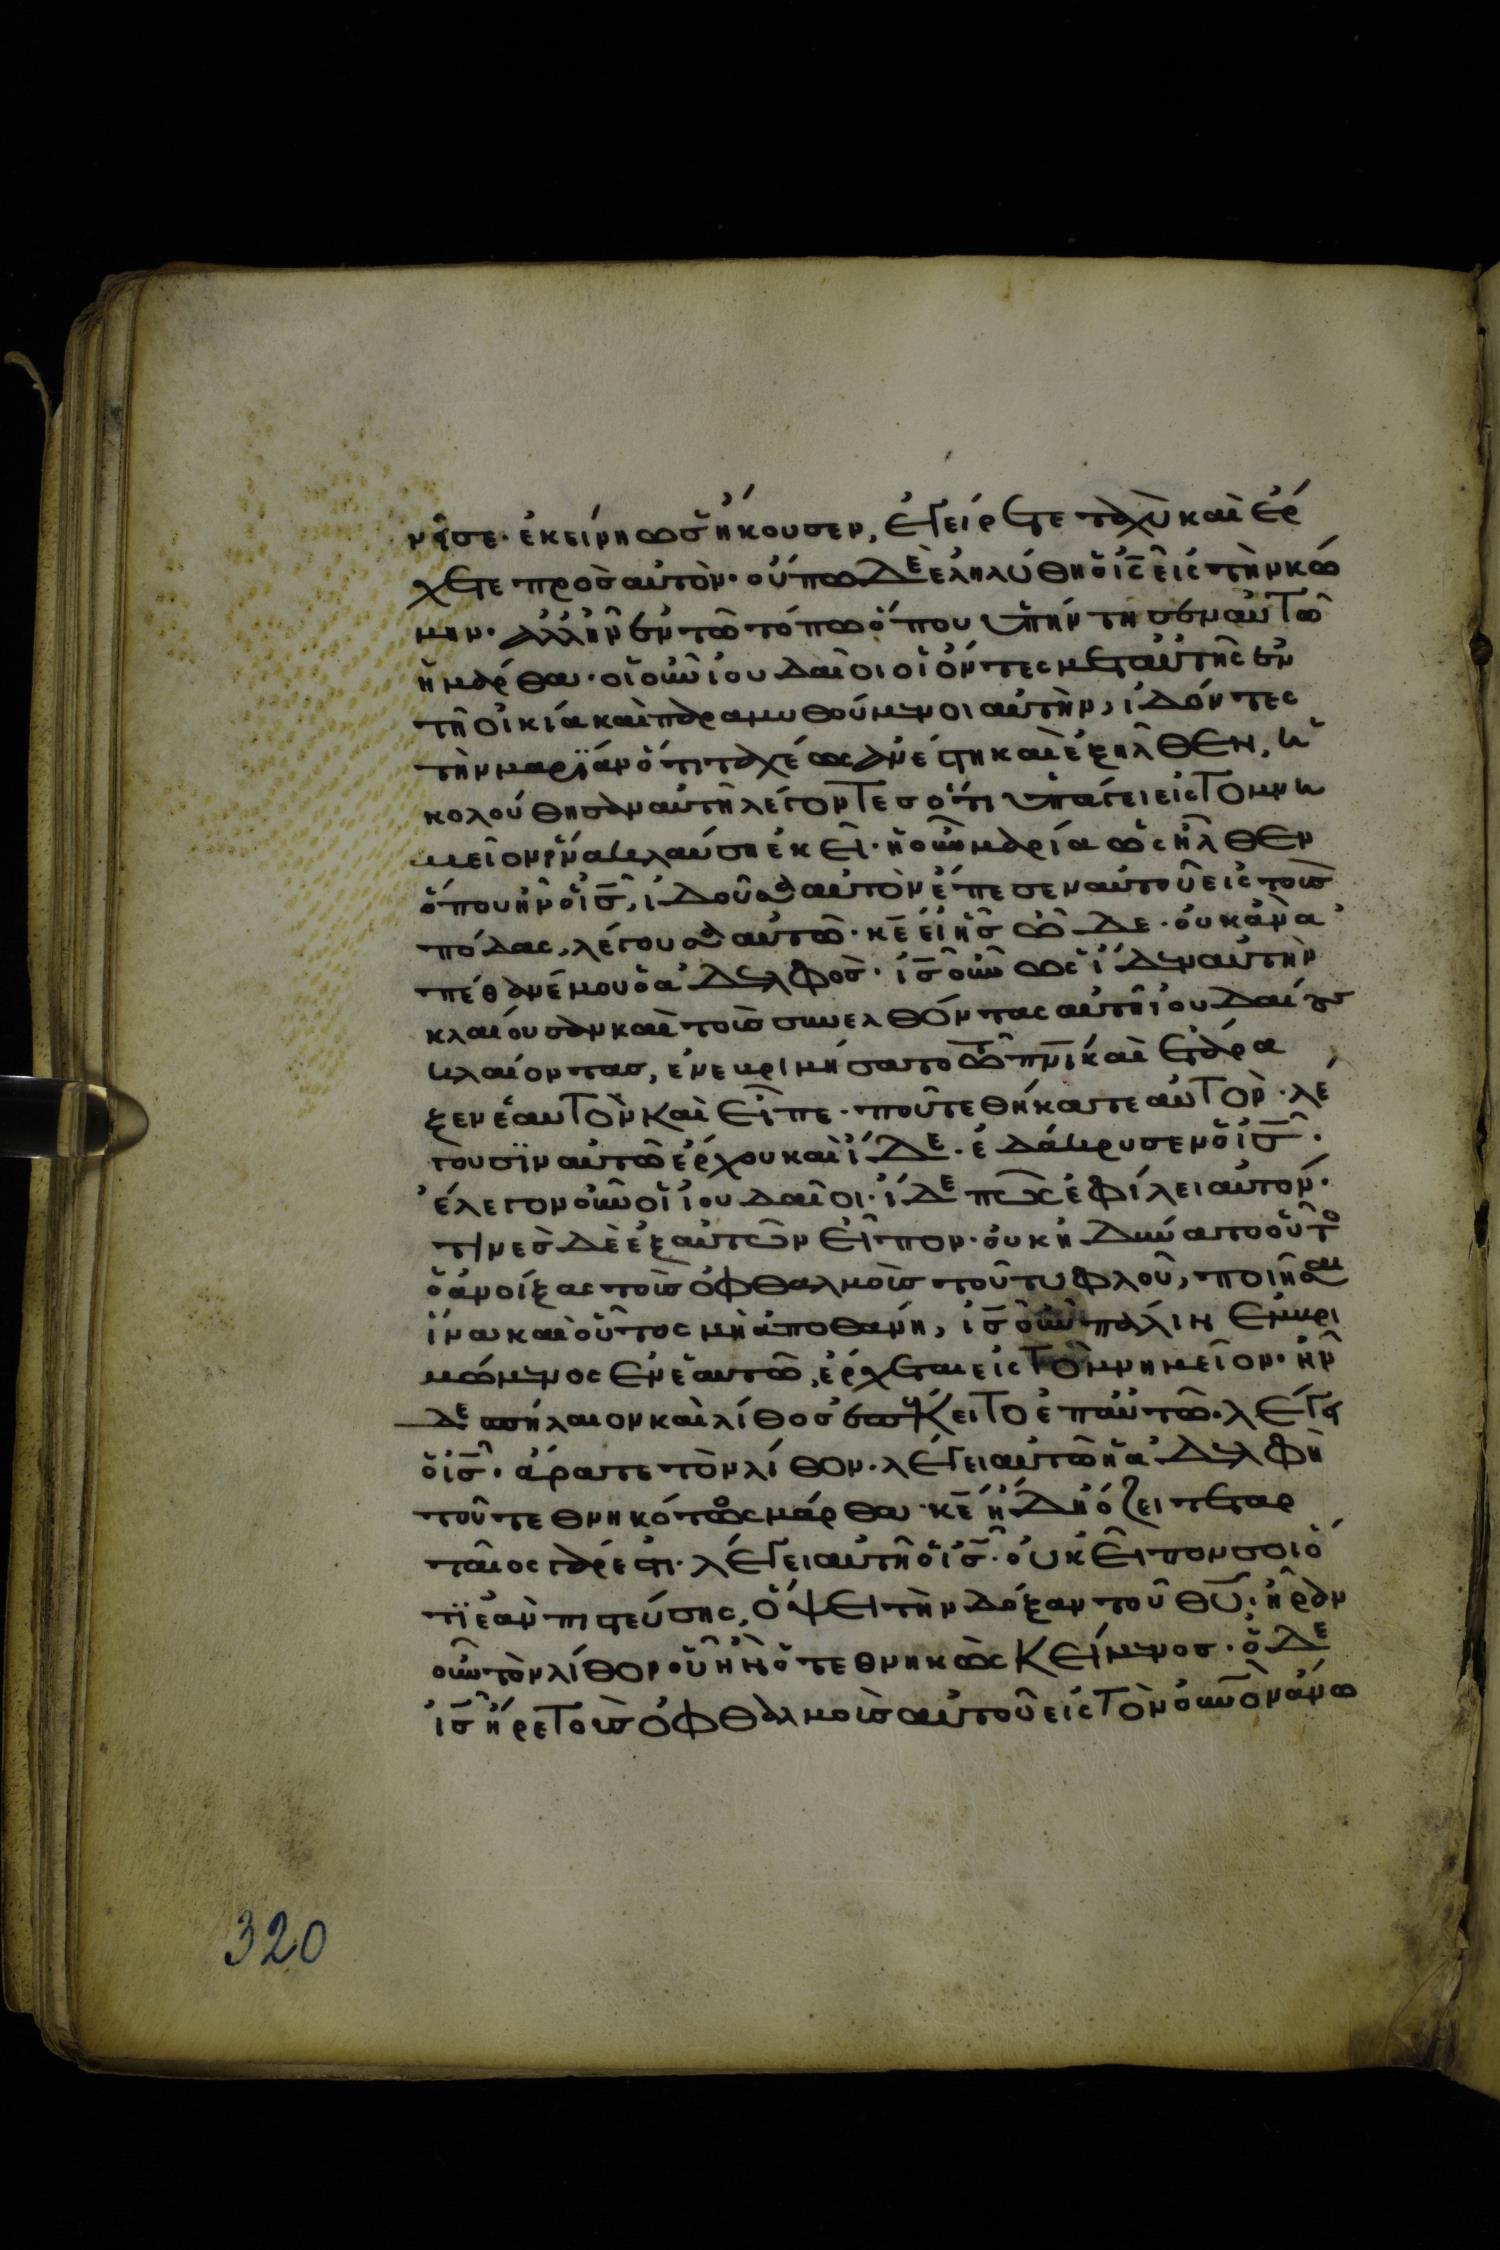 νῆσε· ἐκείνη ὡς ἤκουσεν, ἐγείρεται ταχὺ καὶ ἔρ
χεται πρὸς αὐτὸν· οὔπω δὲ ἐληλύθη ὁ ις̅ εἰς τὴν κώ
μην· ἀλλ' ἦν ἐν τῶ τόπω ὅπου ὑπήντησεν αὐτῶ
ἡ μάρθα· οἱ οὖν ἰουδαῖοι οἱ ὄντες μετ' αὐτῆς ἐν
τῆ οἰκία καὶ παραμυθούμενοι αὐτὴν, ἰδόντες
τὴν μαριὰμ ὅτι ταχέως ἀνέστη καὶ ἐξῆλθεν, ἠ
κολούθησαν αὐτῆ λέγοντες ὅτι ὑπάγει εἰς τὸ μνη
μεῖον ἵνα κλαύση ἐκεῖ· ἡ οὖν μαρία ὡς ἦλθεν
ὅπου ἦν ὁ ις̅, ἰδοῦσα αὐτὸν ἔπεσεν αὐτοῦ εἰς τοὺς
πόδας, λέγουσα αὐτῶ· κε̅ εἰ ἦς ὧδε· οὐκ ἂν ἀ
πέθανέ μου ὁ ἀδελφὸς· ις̅ οὖν ὡς εἶδεν αὐτὴν
κλαίουσαν καὶ τοὺς συνελθόντας αὐτῆ ἰουδαίους
κλαίοντας, ἐνεβριμήσατο τῶ πνι̅ καὶ ἐτάρα
ξεν ἑαυτὸν καὶ εἶπε· ποῦ τεθήκατε αὐτὸν· λέ
γουσϊν αὐτῶ ἔρχου καὶ ἴδε· ἐδάκρυσεν ὁ ις̅·
ἔλεγον οὖν οἱ ἰουδαῖοι· ἴδε πῶς ἐφίλει αὐτόν·
τινὲς δὲ ἐξ αὐτῶν εἶπον· οὐκ ἠδύνατο οὗτο
ὁ ἀνοίξας τοὺς ὀφθαλμοὺς τοῦ τυφλοῦ, ποιῆσαι
ἵνα καὶ οὗτος μὴ ἀποθάνη, ις̅ οὖν πάλιν ἐμβρι
μώμενος ἐν ἑαυτῶ, ἔρχεται εἰς τὸ μνημεῖον· ἦν
δὲ σπήλαιον καὶ λίθος ἐπέκειτο ἐπ' αὐτῶ· λέγει
ὁ ις̅· ἄρατε τὸν λίθον· λέγει αὐτῶ ἡ ἀδελφὴ
τοῦ τεθνηκότος μάρθα· κε̅ ἤδη ὄζει τεταρ
ταῖος γάρ ἐστι· λέγει αὐτῆ ὁ ις̅· οὐκ εἶπον σοι ὅ
τϊ ἐὰν πιστεύσης, ὄψει τὴν δόξαν τοῦ θυ̅· ἦραν
οὖν τὸν λίθον οὗ ἦν ὁ τεθνηκὼς κείμενος· ὁ δὲ
ις̅ ἦρε τοὺς ὀφθαλμοὺς αὐτοῦ εἰς τὸν οὐνὸν ἄνω
320